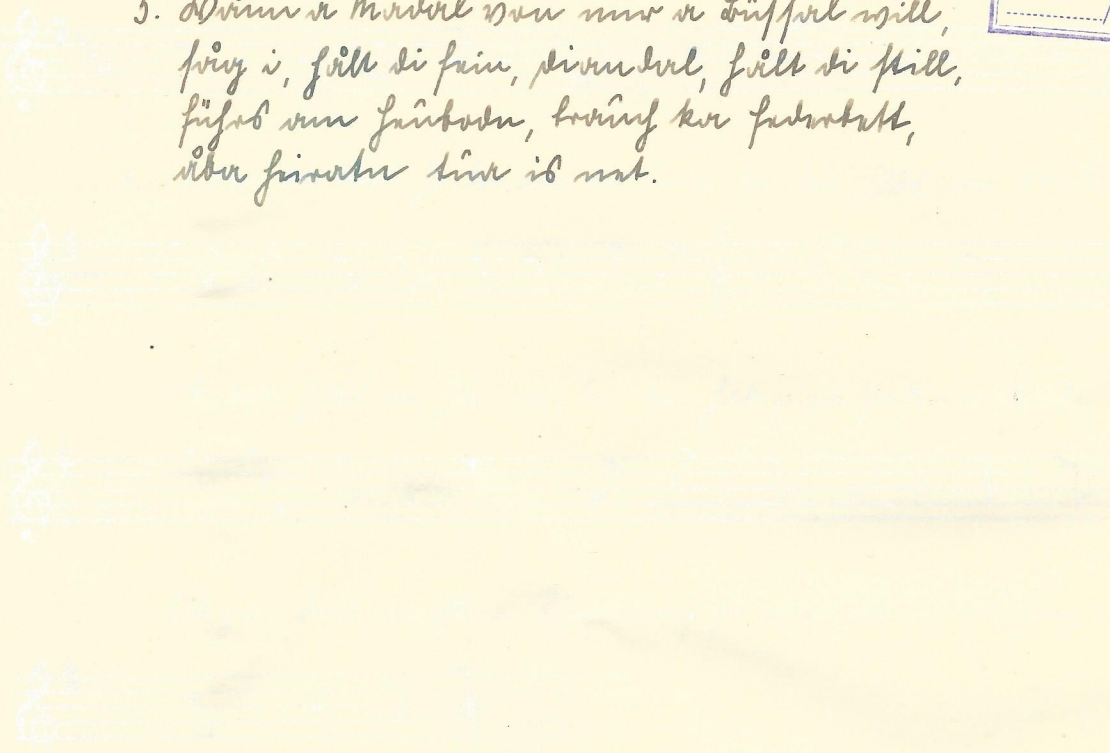 3. Wånn a Madal von mir a Bussal will,
såg i, hålt di fein, Diandal, hålt di still,
führs am Heubodn, brauch ka Federbett,
åba heiratn tua is net.